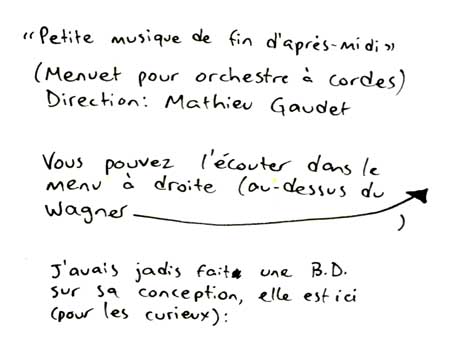 "Petite musique de fin d'après-midi"
(Menuet pour orchestre à cordes)
Direction: Mathieu Gaudet
Vous pouvez l'écouter dans le
menu à droite (au-dessus du
Wagner )
J'avais jadis fait une B.D.
sur sa conception, elle est ici
(pour les curieux):